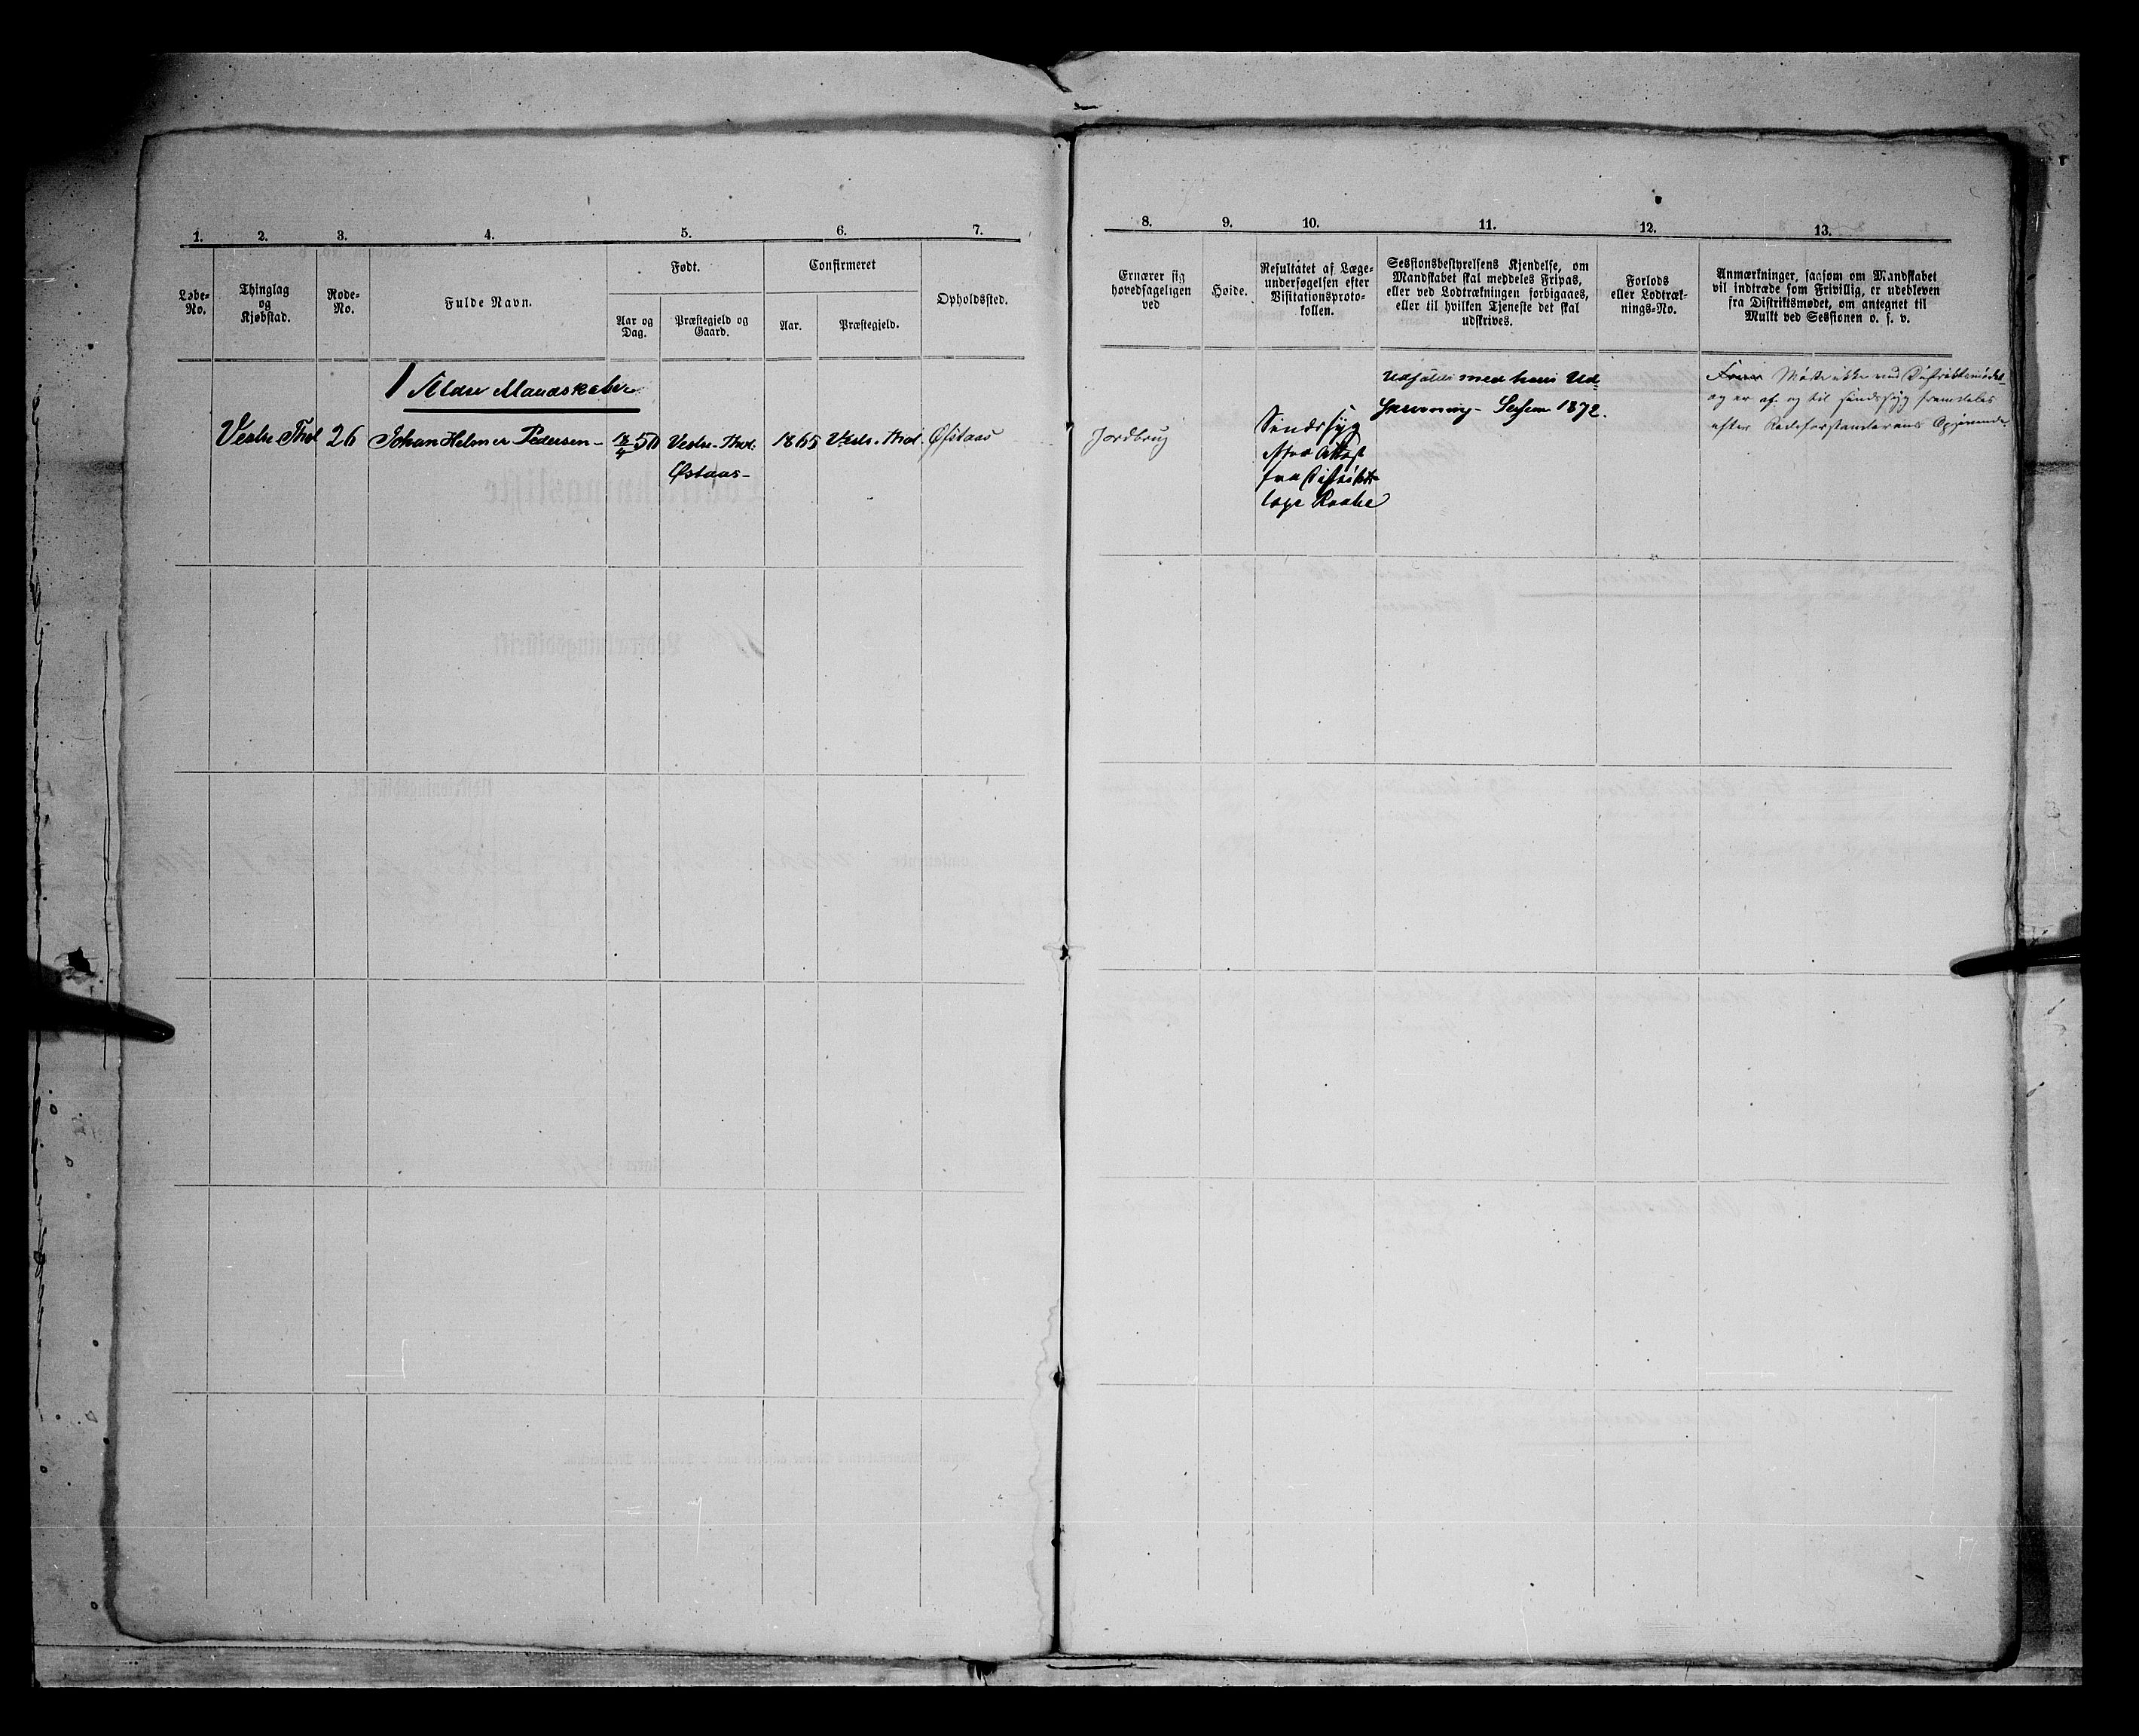 1. 2. 3. 4. 5. 6. 7.
Løbe-No.
Thinglag og Kjøbstad.
Rode-No.
Fulde Navn.
Født.
Aar og Dag.
Præstegjeld og Gaard.
Confirmeret
Aar.
Præstegjeld.
Opholdssted.
Ældre Mandskaber
Vestre Thot 26 Johan Helmer Pedersen - 50 Vestre-Thot. 1865 Vestr. Thot. Østaas
Østaas -
8. 9. 10. 11. 12. 13.
Ernærer sig
hovedsageligen
ved
Høide.
Resultatet af Læge-
undersøgelsen efter
Visitationsproto-
kollen.
Sessionsbestyrelsens Kjendelse, om
Mandskabet skal meddeles Fripas,
eller ved Lodtrækningen forbigaaes,
eller til hvilken Tjeneste det skal
udskrives.
Forlods
eller Lodtræk-
nings-No.
Anmærkninger, saasom om Mandskabet
vil indtræde som Frivillig, er udebleven
fra Distriktsmødet, om antegnet til
Mulkt ved Sessionen o. s. v.
Jordbrug
Sindssyg
Attest
fra Distrikts-
læge Raabe
Udsættes med hans Ud-
skrivning - Session 1872.
Mødte ikke ved Distriktsmødet
og er af og til sindssyg fremdeles
efter Rodeforstanderens Opgivende.